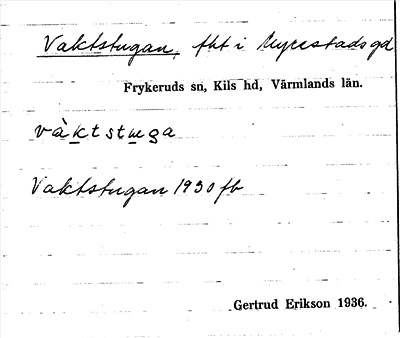 Vaktstugan, tht i Myrestads gd
Frykeruds sn, Kils hd, Värmlands län.
vàktstuga
Vaktstugan 1930 fb
Gertrud Erikson 1936.